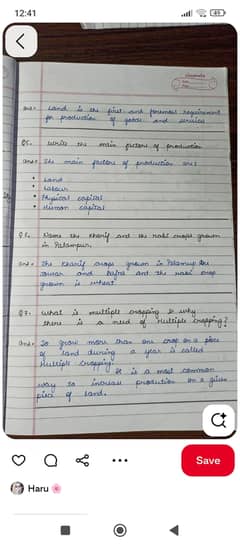 12:41
45
Ans:- Land is the first and foremost requirement
for production of goods and services
Q5. Write the main factors of production
Ans:- The main factors of production are:
• Land
• Labour
• Physical capital
• Human capital
Q6. Name the Kharif and the rabi crops grown
in Palampur.
Ans:- The Kharif crops grown in Palampur are
Jowar and bajra and the rabi crop
grown is wheat
Q7. What is multiple cropping & why
there is a need of Multiple cropping?
Ans:- To grow more than one crop on a piece
of land during a year is called
Multiple cropping.
It is a most common
way to increase production on a given
piece of land.
Save
Haru 🌸